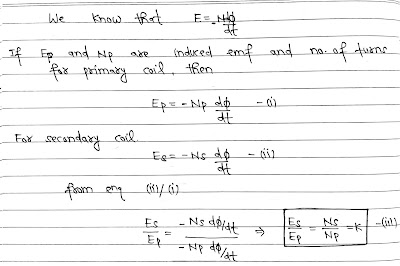 We know that E = -Ndϕ/dt
If Ep and Np are induced emf and no. of turns
for primary coil, then
Ep = - Np dϕ/dt - (i)
For secondary coil
Es = - Ns dϕ/dt - (ii)
from eqn (ii)/(i)
Es/Ep = - Ns dϕ/dt / - Np dϕ/dt ⇒ Es/Ep = Ns/Np = K - (iii)